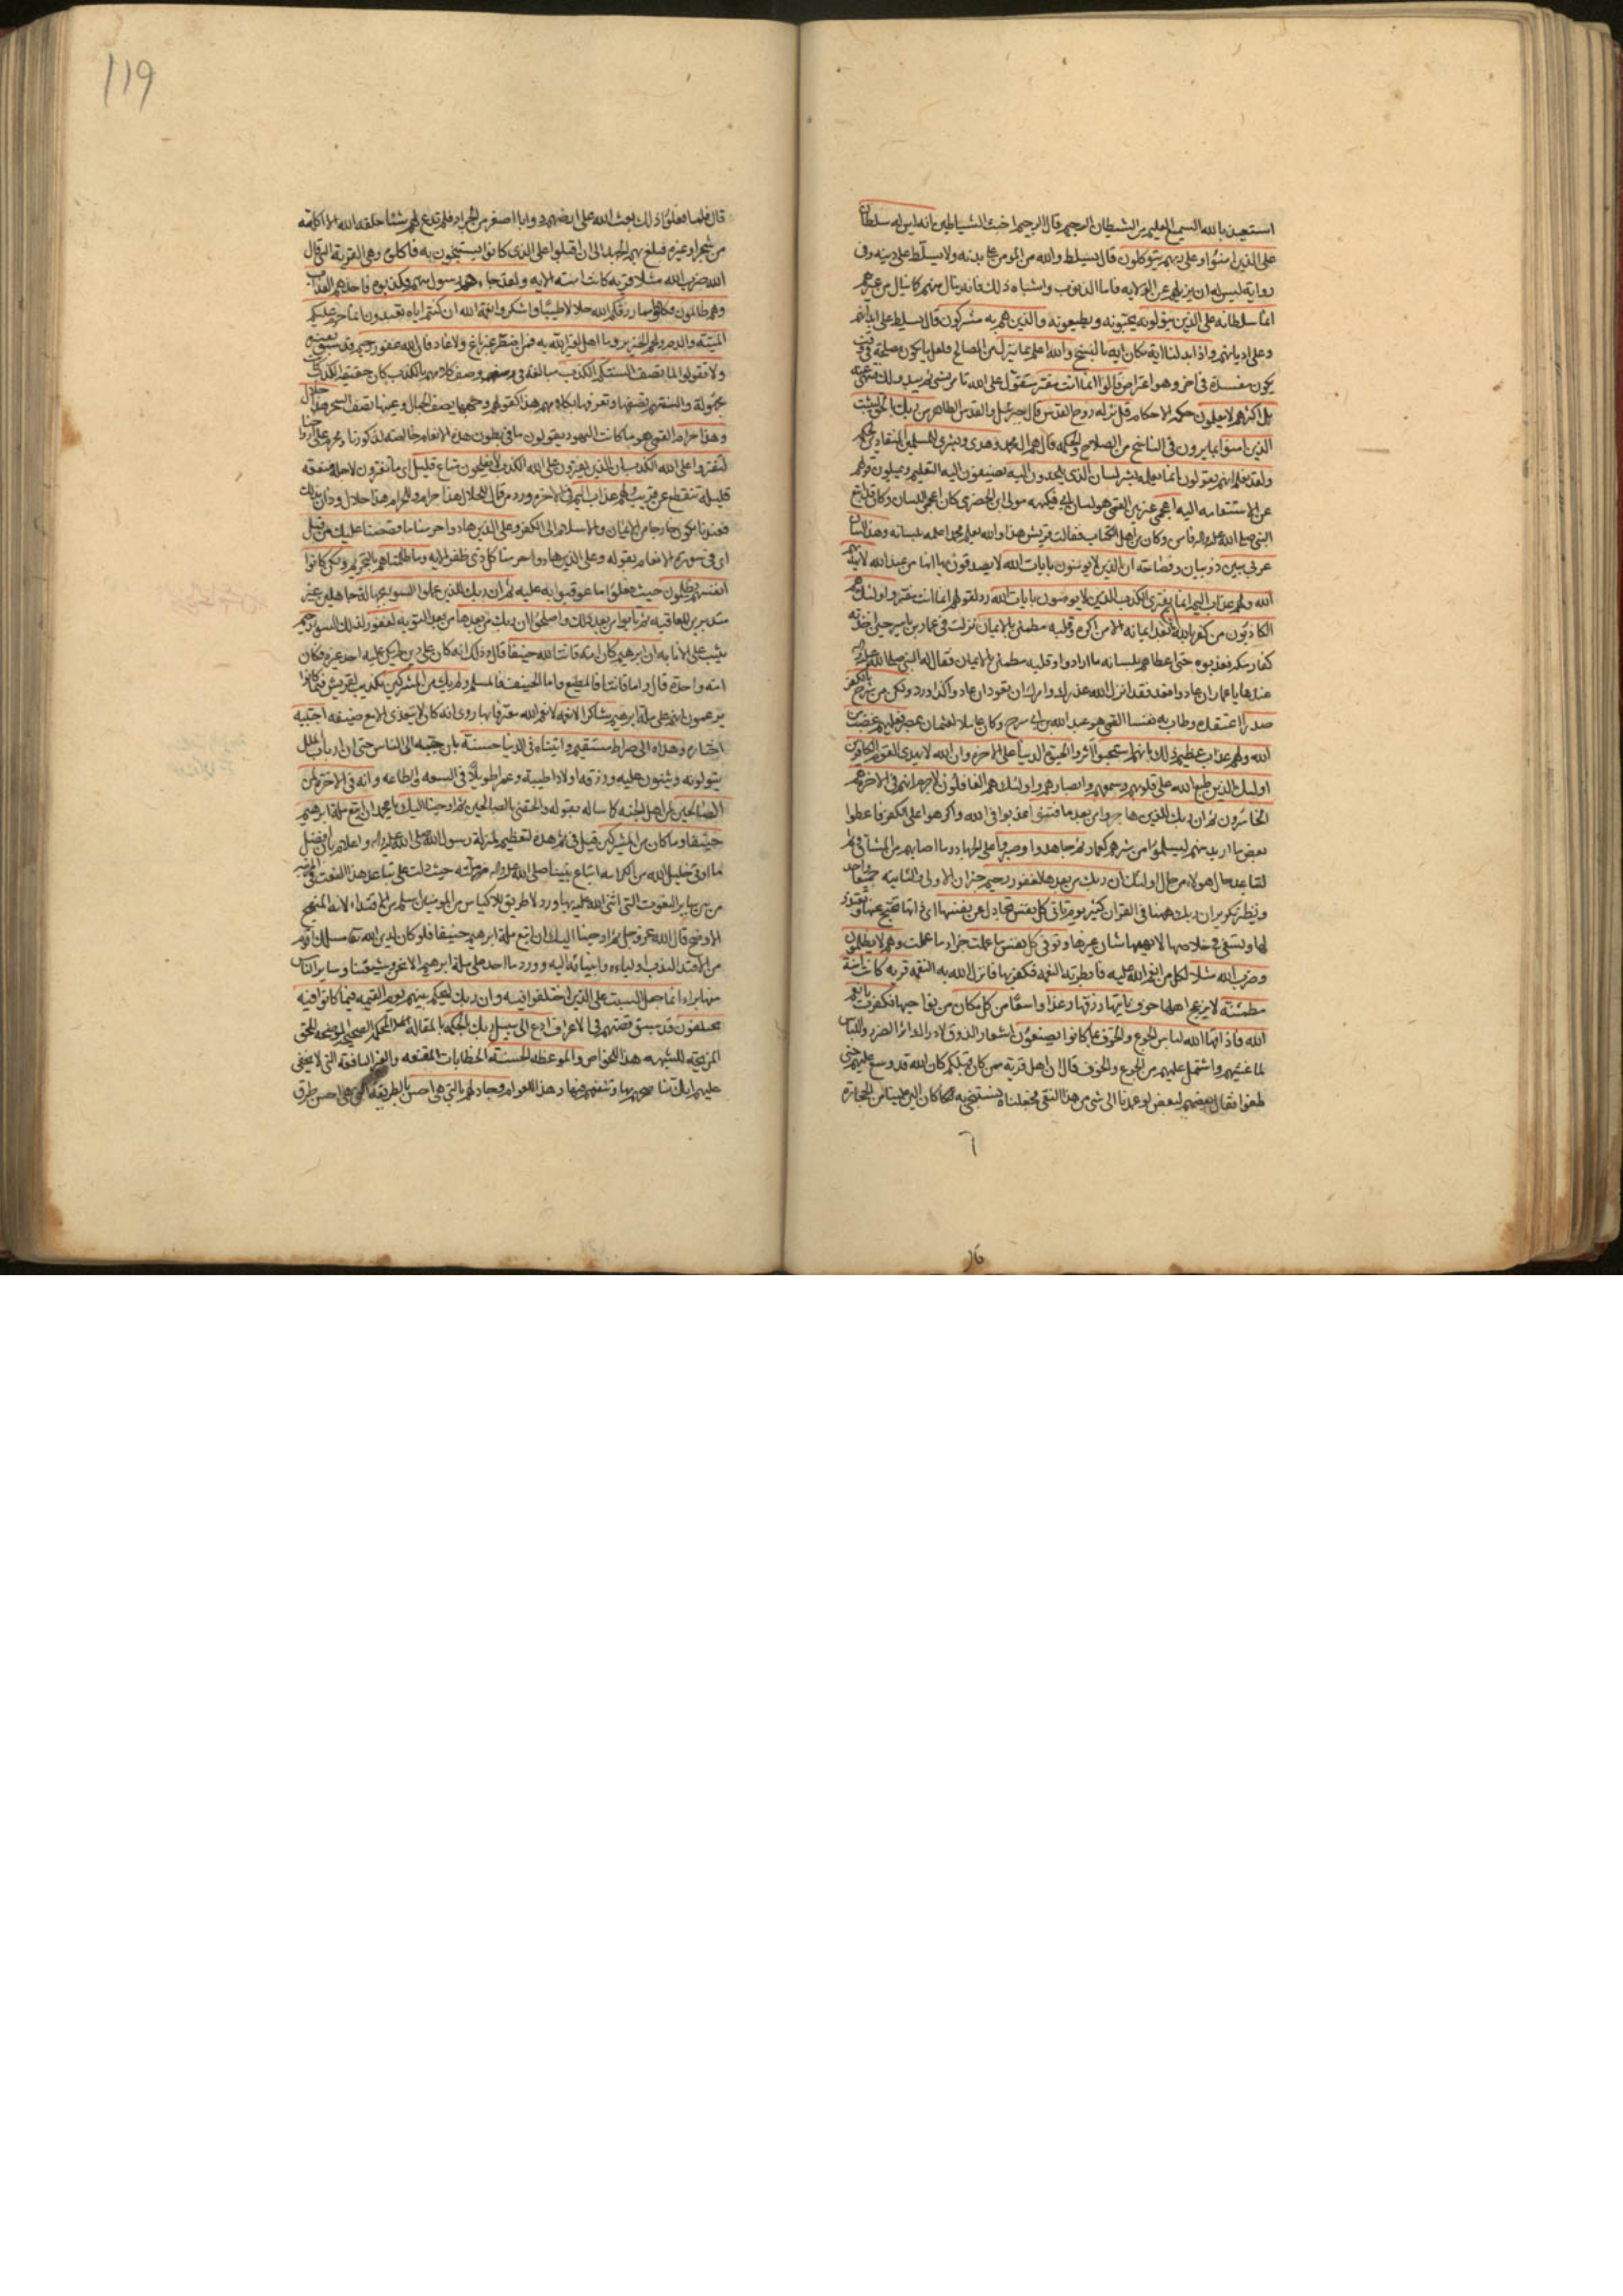 استعيذ بالله السميع العليم من الشيطان الرجيم قال الرجيم اخبث الشياطين انه ليس له سلطان
على الذين امنوا وعلى ربهم يتوكلون قال يسلط والله من المؤمن على بدنه ولا يسلط على دينه وفى
رواية ليس له ان يزيلهم عن الولايه فاما الذنوب واشباه ذلك فانه ينال منهم كما ينال من غيرهم
انما سلطانه على الذين يتولونه يحبونه ويطيعونه والذين هم به مشركون قال يسلط على ابدانهم
وعلى اديانهم واذا بدلنا اية مكان اية بالنسخ والله اعلم بما ينزل من المصالح فلعل ما يكون مصلحة فى وقت
يكون مفسدة فى اخر وهو اعتراض قالوا انما انت مفتر متقول على الله تامر بشئ ثم يبدو لك فتنهى عنه
بل اكثرهم لا يعلون حكمة الاحكام قل نزله روح القدس قال جبرئيل والقدس الطاهر من ربك بالحق ليثبت
الذين امنوا بما يرون فى الناسخ من الصلاح والحكمه وهدى وبشرى للمسلمين المنقادين لحكمه
ولقد نعلم انهم يقولون انما يعلمه بشر لسان الذى يلحدون اليه يضيفون اليه التعليم ويميلون قولهم
عن الاستقامه اليه اعجمى غير بين القمى هو لسان ابى فكيهه مولى ابن الحضرمى كان اعجمى اللسان وكان قد اتبع
النبى صلى الله عليه واله وامن وكان من اهل الكتاب فقالت قريش هذا والله يعلم محمدا علمه بلسانه وهذا لسان
عربى مبين ذو بيان وفصاحة ان الذين لا يؤمنون بايات الله لا يصدقون بها انها من عند الله لا يهديهم
الله ولهم عذاب اليم انما يفترى الكذب الذين لا يومنون بايات الله رد لقولهم انما انت مفتر واولئك هم
الكاذبون من كفر بالله من بعد ايمانه الا من اكره وقلبه مطمئن بالايمان نزلت فى عمار بن ياسر حين اخذته
كفار مكه فعذبوه حتى اعطاهم بلسانه ما ارادوا وقلبه مطمئن بالايمان فقال له النبى صلى الله عليه واله
عندها يا عمار ان عادوا فعد فقد انزل الله عذرك وامرك ان تعود ان عادوا كذا ورد ولكن من شرح بالكفر
صدرا اعتقده وطاب به نفسا القمى هو عبد الله بن ابى سرح وكان عاملا لعثمان على مصر فعليهم غضب من
الله ولهم عذاب عظيم ذلك بانهم استحبوا اثروا الحيوة الدنيا على الاخرة وان الله لا يهدى القوم الكافرين
اولئك الذين طبع الله على قلوبهم وسمعهم وابصارهم واولئك هم الغافلون لا جرم انهم فى الاخرة هم
الخاسرون ثم ان ربك للذين هاجروا من بعد ما فتنوا عذبوا فى الله واكرهوا على الكفر فاعطوا
بعض ما اريد منهم ليسلموا من شرهم كعمار ثم جاهدوا وصبروا على الجهاد وما اصابهم من المشاق ثم
لتباعد حال هولاء من حال اولئك ان ربك من بعدها لغفور رحيم خبر ان الاولى والثانيه جميعا واحد
ونظير تكرير ان ربك ههنا فى القران كثير يوم تاتى كل نفس تجادل عن نفسها اى ذاتها تحتج عنها وتعتذر
لها وتسعى فى خلاصها لا يهمها شان غيرها وتوفى كل نفس ما عملت جزاء ما عملت وهم لا يظلمون
وضرب الله مثلا لكل من انعم الله عليه فابطرته النعمه فكفر بها فانزل الله به النقمه قرية كانت امنة
مطمئنة لا يزعج اهلها خوف ياتيها رزقها رغدا واسعا من كل مكان من نواحيها فكفرت بانعم
الله فاذاقها الله لباس الجوع والخوف بما كانوا يصنعون استعار الذوق لادراك اثر الضرر واللباس
لما غشيهم واشتمل عليهم من الجوع والخوف قال ان اهل قرية ممن كان قبلكم كان الله قد وسع عليهم حتى
طغوا فقال بعضهم لبعض لو عمدنا الى شئ من هذا النقى فجعلناه نستنجى به كان الين علينا من الحجارة
119
قال فلما فعلوا ذلك بعث الله على ارضهم دوابا اصغر من الجراد فلم تدع لهم شئا خلقه الله الا اكلته
من شجر او غيره فبلغ بهم الجهد الى ان اقبلوا على الذى كانوا يستنجون به فاكلوه وهى القرية التى قال
الله ضرب الله مثلا قرية كانت امنة الايه ولقد جاءهم رسول منهم فكذبوه فاخذهم العذاب
وهم ظالمون فكلوا مما رزقكم الله حلالا طيبا واشكروا نعمة الله ان كنتم اياه تعبدون انما حرم عليكم
الميتة والدم ولحم الخنزير وما اهل لغير الله به فمن اضطر غير باغ ولا عاد فان الله غفور رحيم قد سبق تفسيره
ولا تقولوا لما تصف السنتكم الكذب مبالغة فى وصف كلامهم بالكذب كان حقيقة الكذب كانت
مجهولة والسنتهم تصفها وتعرفها بكلامهم هذا كقولهم وجهها يصف الجمال وعينها تصف السحر هذا حلال
وهذا حرام القمى هو ما كانت اليهود يقولون ما فى بطون هذه الانعام خالصة لذكورنا ومحرم على ازواجنا
لتفتروا على الله الكذب ان الذين يفترون على الله الكذب لا يفلحون متاع قليل اى ما يفترون لاجله منفعة
قليلة تنقطع عن قريب ولهم عذاب اليم فى الاخرة ورد من قال للحلال هذا حرام وللحرام هذا حلال ودان بذلك
فعندها يكون خارجا من الايمان والاسلام الى الكفر وعلى الذين هادوا حرمنا ما قصصنا عليك من قبل
اى فى سورة الانعام بقوله وعلى الذين هادوا حرمنا كل ذى ظفر الايه وما ظلمناهم بالتحريم ولكن كانوا
انفسهم يظلمون حيث فعلوا ما عوقبوا به عليه ثم ان ربك للذين عملوا السوء بجهالة جاهلين غير
متدبرين للعاقبه ثم تابوا من بعد ذلك واصلحوا ان ربك من بعدها من بعد التوبه لغفور لذلك السوء رحيم
يثيب على الانابه ان ابرهيم كان امة قانتا لله حنيفا قال وذلك انه كان على دين لم يكن عليه احد غيره فكان
امة واحدة قال واما قانتا فالمطيع واما الحنيف فالمسلم ولم يك من المشركين تكذيب لقريش فيما كانوا
يزعمون انهم على ملة ابرهيم شاكرا لانعمه لانعم الله معترفا بها روى انه كان لا يتغذى الا مع ضيفه اجتبيه
اختاره وهداه الى صراط مستقيم واتيناه فى الدنيا حسنة بان حببه الى الناس حتى ان ارباب الملل
يتولونه ويثنون عليه ورزقه اولادا طيبة وعمرا طويلا فى السعه والطاعه وانه فى الاخرة لمن
الصالحين لمن اهل الجنه كما ساله بقوله والحقنى بالصالحين ثم اوحينا اليك يا محمد ان اتبع ملة ابرهيم
حنيفا وما كان من المشركين قيل فى ثم هذه تعظيم لمنزلة رسول الله صلى الله عليه واله واعلام بان افضل
ما اوتى خليل الله من الكرامه اتباع نبينا صلى الله عليه واله ملته حيث دلت على تباعد هذا النعت فى المرتبه
من بين ساير النعوت التى اثنى الله عليه بها ورد لا طريق للاكياس من المومنين اسلم من الاقتداء لانه المنهج
الاوضح قال الله عز وجل ثم اوحينا اليك ان اتبع ملة ابرهيم حنيفا فلو كان لدين الله تعالى مسلك اقوم
من الاقتداء لندب اولياءه وانبيائه اليه وورد ما احد على ملة ابرهيم الا نحن وشيعتنا وساير الناس
منها براء انما جعل السبت على الذين اختلفوا فيه وان ربك ليحكم بينهم يوم القيمه فيما كانوا فيه
يختلفون قد سبق قصتهم فى الاعراف ادع الى سبيل ربك بالحكمه بالمقاله المحكمه الصحيحه الموضحه للحق
المزيحه للشبهه هذا للخواص والموعظه الحسنة الخطابات المقنعه والعبر النافعه التى لا يخفى
عليهم انك تناصحهم بها وتنفعهم فيها وهذا للعوام وجادلهم بالتى هى احسن بالطريقة التى هى احسن طرق